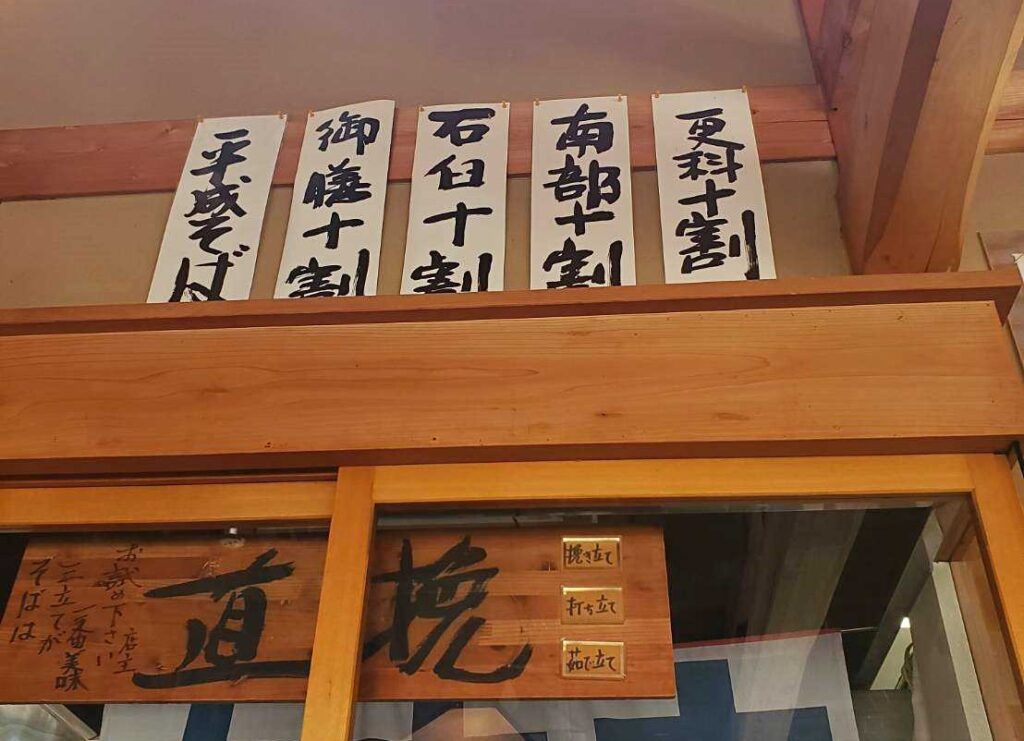 更科十割
南部十割
石臼十割
御膳十割
平成そば
挽き立て
打ち立て
茹で立て
挽
直
そばは
三立てが
一番美味
お試め下さい
店主